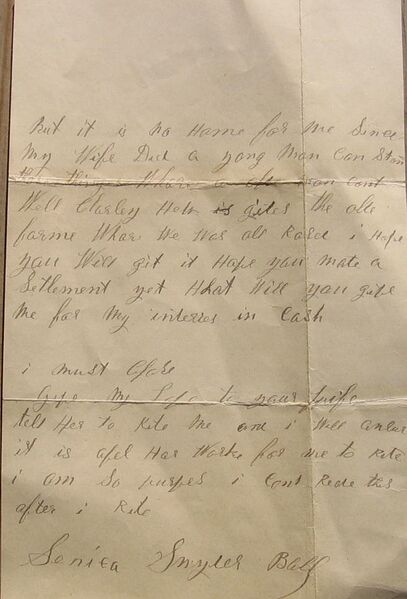 But it is no Home for me Since
My Wife Died a yong Man Can Stan
the things Whare a old man Cont
Well Charley How is gites the old
farme Whar We Was all Rased i Hope
you Will git it Hope you mate a
Setlement yet What Will you give
Me for My interres in Cash
i must Close
Give My Love to your wife
tell Her to Rite Me and i Will anser
it is Hard Worke for me to Rite
i am So i Cont Rede this
after i Rite
Snyder Ball